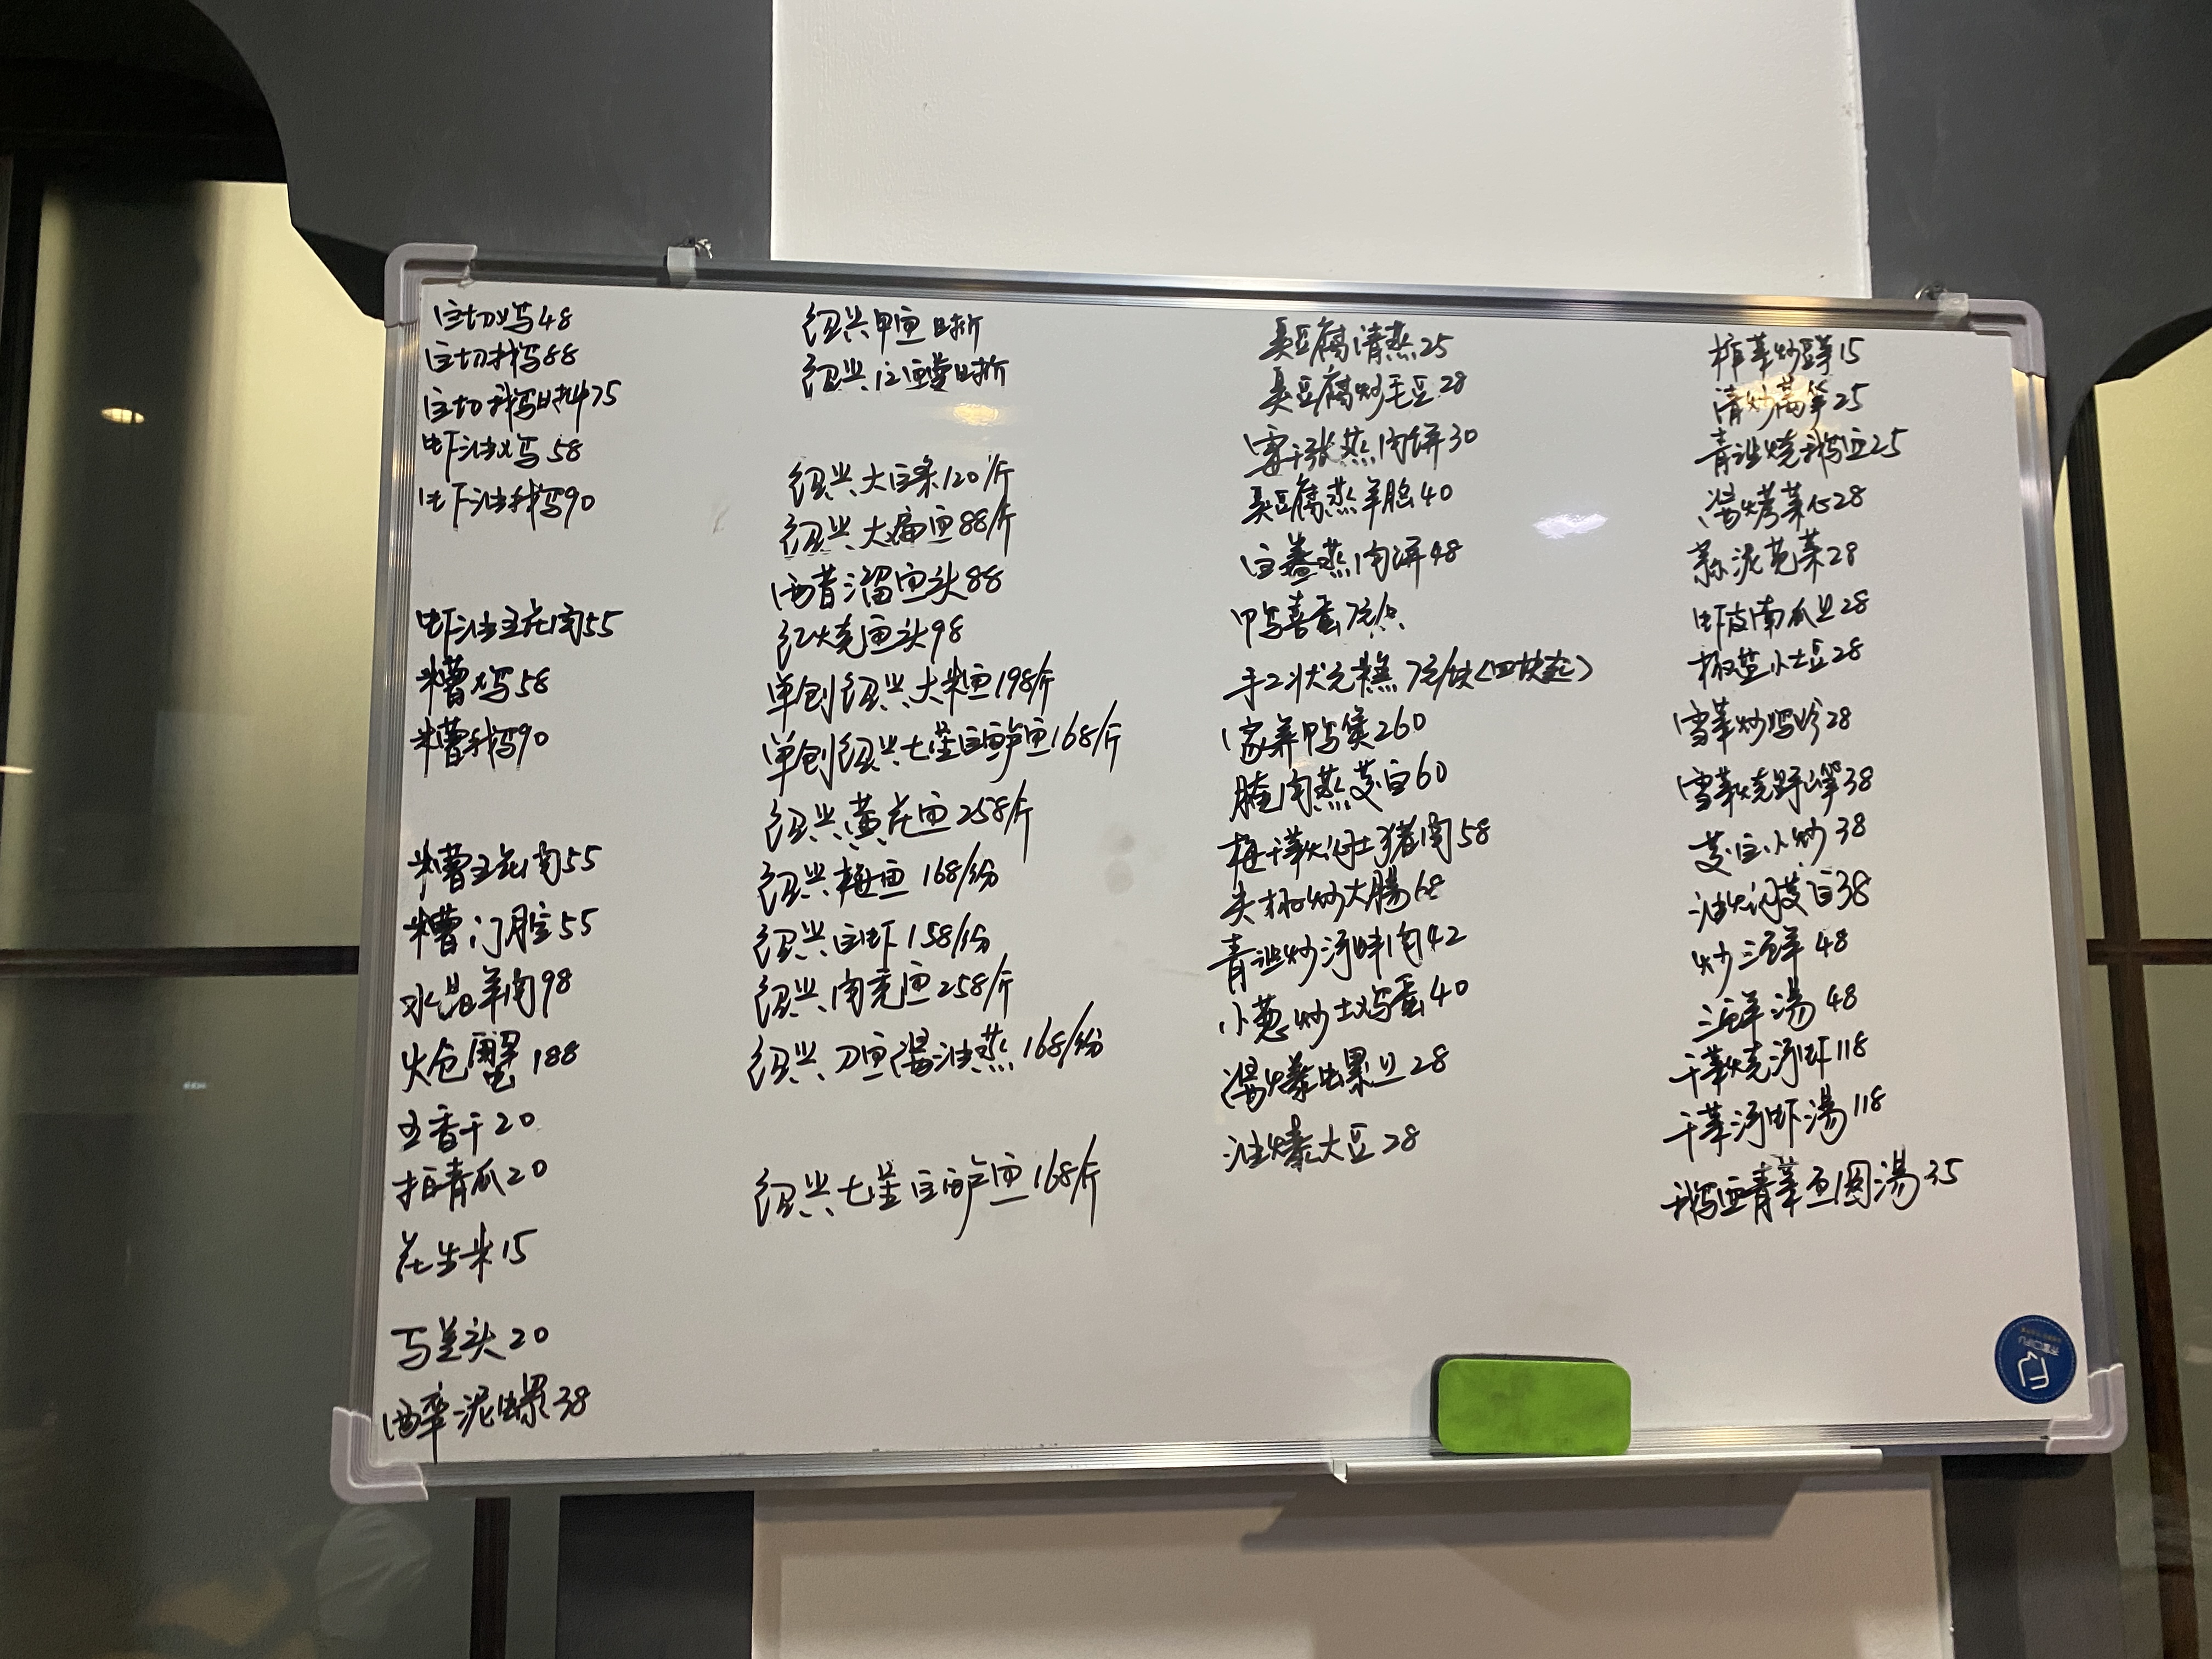 白切鸡48
白切鹅88
白切鹅时件75
虾油鸡58
虾油鹅90
虾油五花肉55
糟鸡58
糟鹅90
糟五花肉55
糟门腔55
水晶羊肉98
火仓蟹188
五香干20
拍青瓜20
花生米15
写羊头20
醉泥螺38
绍兴甲鱼时价
绍兴江鱼鳗时价
绍兴大白条120/斤
绍兴大扁鱼88/斤
西昔溜鱼头88
红烧鱼头98
单创绍兴大米鱼198/斤
单创绍兴七星白鲈鱼168/斤
绍兴黄花鱼258/斤
绍兴梅鱼168/份
绍兴白虾158/份
绍兴肉壳鱼258/斤
绍兴刀鱼酱油蒸168/份
绍兴七星白鲈鱼168/斤
臭豆腐清蒸25
臭豆腐炒毛豆28
霉千张蒸肉饼30
臭豆腐蒸羊脑40
白鲞蒸肉饼48
鸭喜蛋7元/只
手工状元糕7元/块(四块起)
家养鸭煲260
腌肉蒸茭白60
梅干菜火焐土猪肉58
尖椒炒大肠68
青椒炒河蚌肉42
小葱炒土鸡蛋40
酱爆螺丝28
油爆大豆28
榨菜炒豆芽15
清炒莴笋25
青油烧鹅血25
酱烤菜心28
蒜泥苋菜28
虾皮南瓜丝28
椒盐小土豆28
雪菜炒鸡胗28
雪菜烧野笋38
茭白小炒38
油焖茭白38
炒三鲜48
三鲜汤48
干菜烧河虾118
干菜河虾汤118
鹅血青菜鱼圆汤35